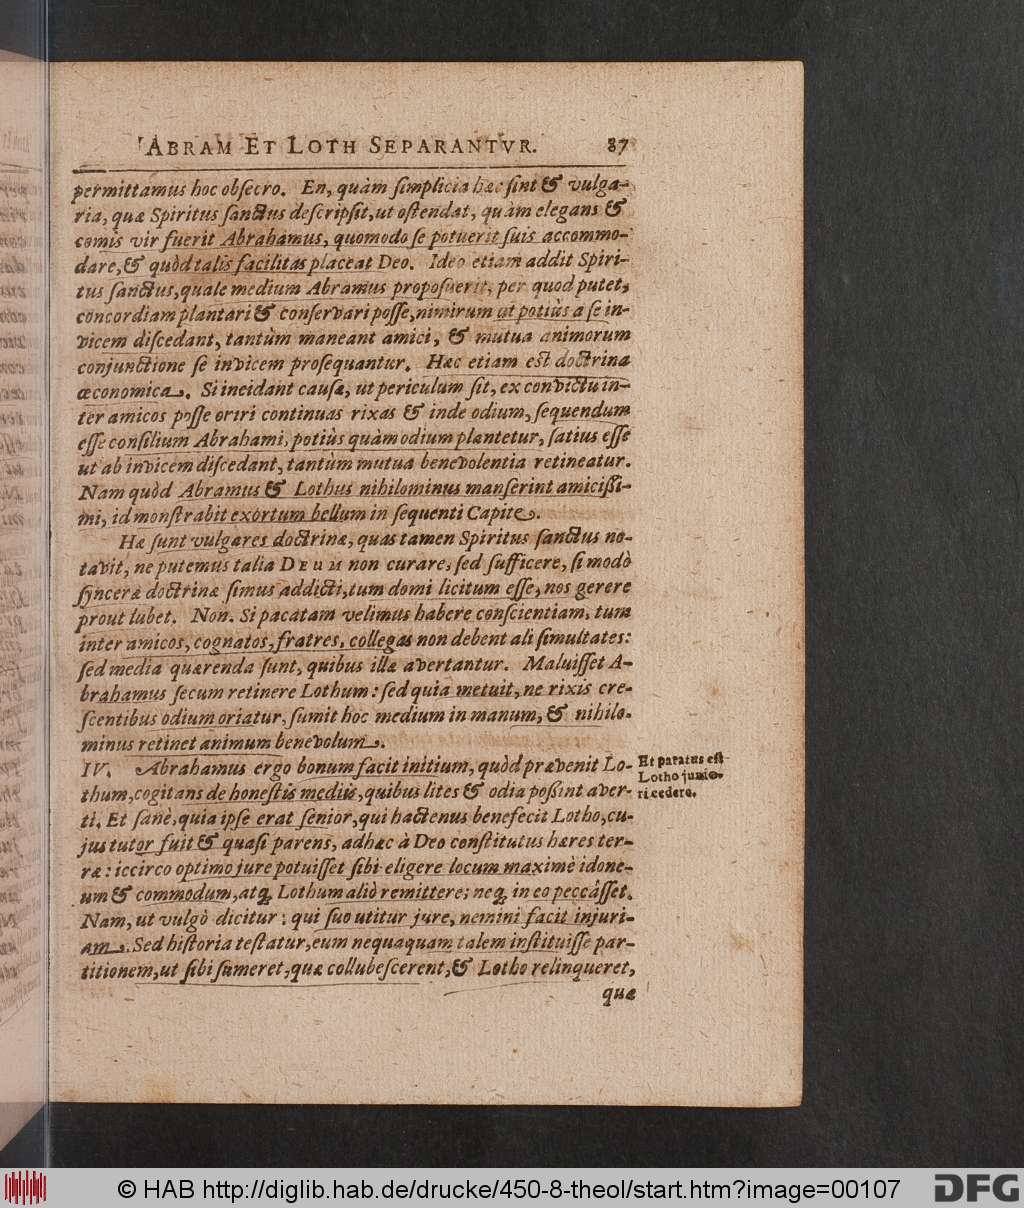 ABRAM ET LOTH SEPARANTVR. 87
permittamus hoc obſecro. En, quàm ſimplicia hæc ſint & vulga-
ria, quæ Spiritus ſanctus deſcripſit, ut oſtendat, quàm elegans &
comis vir fuerit Abrahamus, quomodo ſe potuerit ſuis accommo-
dare, & quòd talis facilitas placeat Deo. Ideo etiam addit Spiri-
tus ſanctus, quale medium Abramus propoſuerit, per quod putet,
concordiam plantari & conſervari poſſe, nimirum ut potiùs a ſe in-
vicem diſcedant, tantùm maneant amici, & mutua animorum
conjunctione ſe invicem proſequantur. Hæc etiam est doctrina
œconomica. Si incidant cauſæ, ut periculum ſit, ex convictu in-
ter amicos poſſe oriri continuas rixas & inde odium, ſequendum
eſſe conſilium Abrahami, potiùs quàm odium plantetur, ſatius eſſe
ut ab invicem diſcedant, tantùm mutua benevolentia retineatur.
Nam quòd Abramus & Lothus nihilominus manſerint amiciſſi-
mi, id monſtrabit exortum bellum in ſequenti Capite.
Hæ ſunt vulgares doctrinæ, quas tamen Spiritus ſanctus no-
tavit, ne putemus talia DEUM non curare, ſed ſufficere, ſi modò
ſynceræ doctrinæ ſimus addicti, tum domi licitum eſſe, nos gerere
prout lubet. Non. Si pacatam velimus habere conſcientiam, tum
inter amicos, cognatos, fratres, collegas non debent ali ſimultates:
ſed media quærenda ſunt, quibus illæ avertantur. Maluiſſet A-
brahamus ſecum retinere Lothum: ſed quia metuit, ne rixis cre-
ſcentibus odium oriatur, ſumit hoc medium in manum, & nihilo-
minus retinet animum benevolum.
IV. Abrahamus ergo bonum facit initium, quòd prævenit Lo-
thum, cogitans de honeſtis mediis, quibus lites & odia poſſint aver-
ti. Et ſanè, quia ipſe erat ſenior, qui hactenus benefecit Lotho, cu-
jus tutor fuit & quaſi parens, adhæc à Deo conſtitutus hæres ter-
ræ: iccirco optimo jure potuiſſet ſibi eligere locum maximè idone-
um & commodum, atq; Lothum aliò remittere; neq; in eo peccáſſet.
Nam, ut vulgò dicitur: qui ſuo utitur jure, nemini facit injuri-
am. Sed hiſtoria teſtatur, eum nequaquam talem inſtituiſſe par-
titionem, ut ſibi ſumeret, quæ collubeſcerent, & Lotho relinqueret,
quæ
Et paratus eſt
Lotho junio-
ri cedere.
© HAB http://diglib.hab.de/drucke/450-8-theol/start.htm?image=00107
DFG